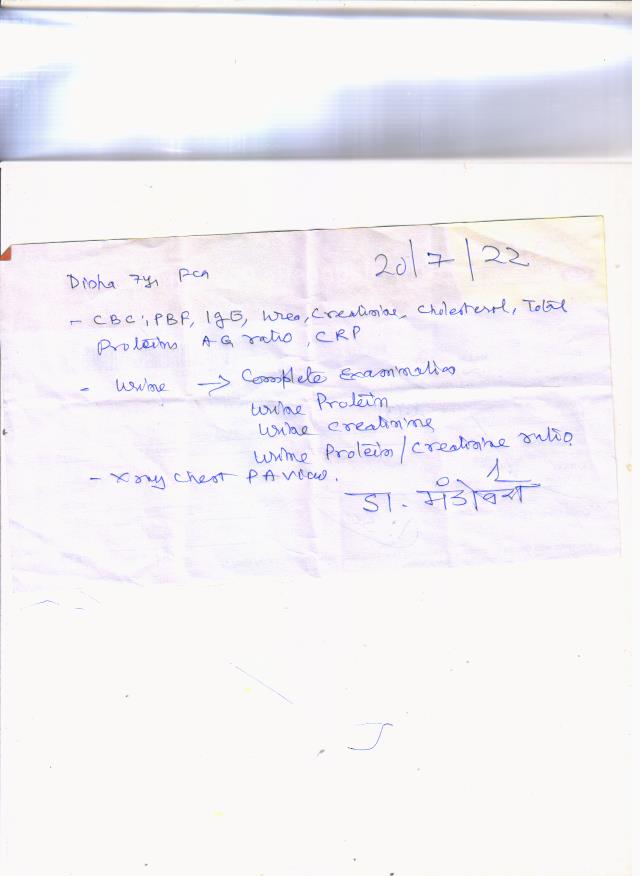 Disha 7y,
20/7/22
- CBC, PBF, IgE, Urea, Creatinine, Cholesterol, Total
Proteins AG ratio, CRP
- Urine → Complete Examination
Urine Protein
Urine Creatinine
Urine Protein/Creatinine ratio
- Xray Chest PA View.
डा.